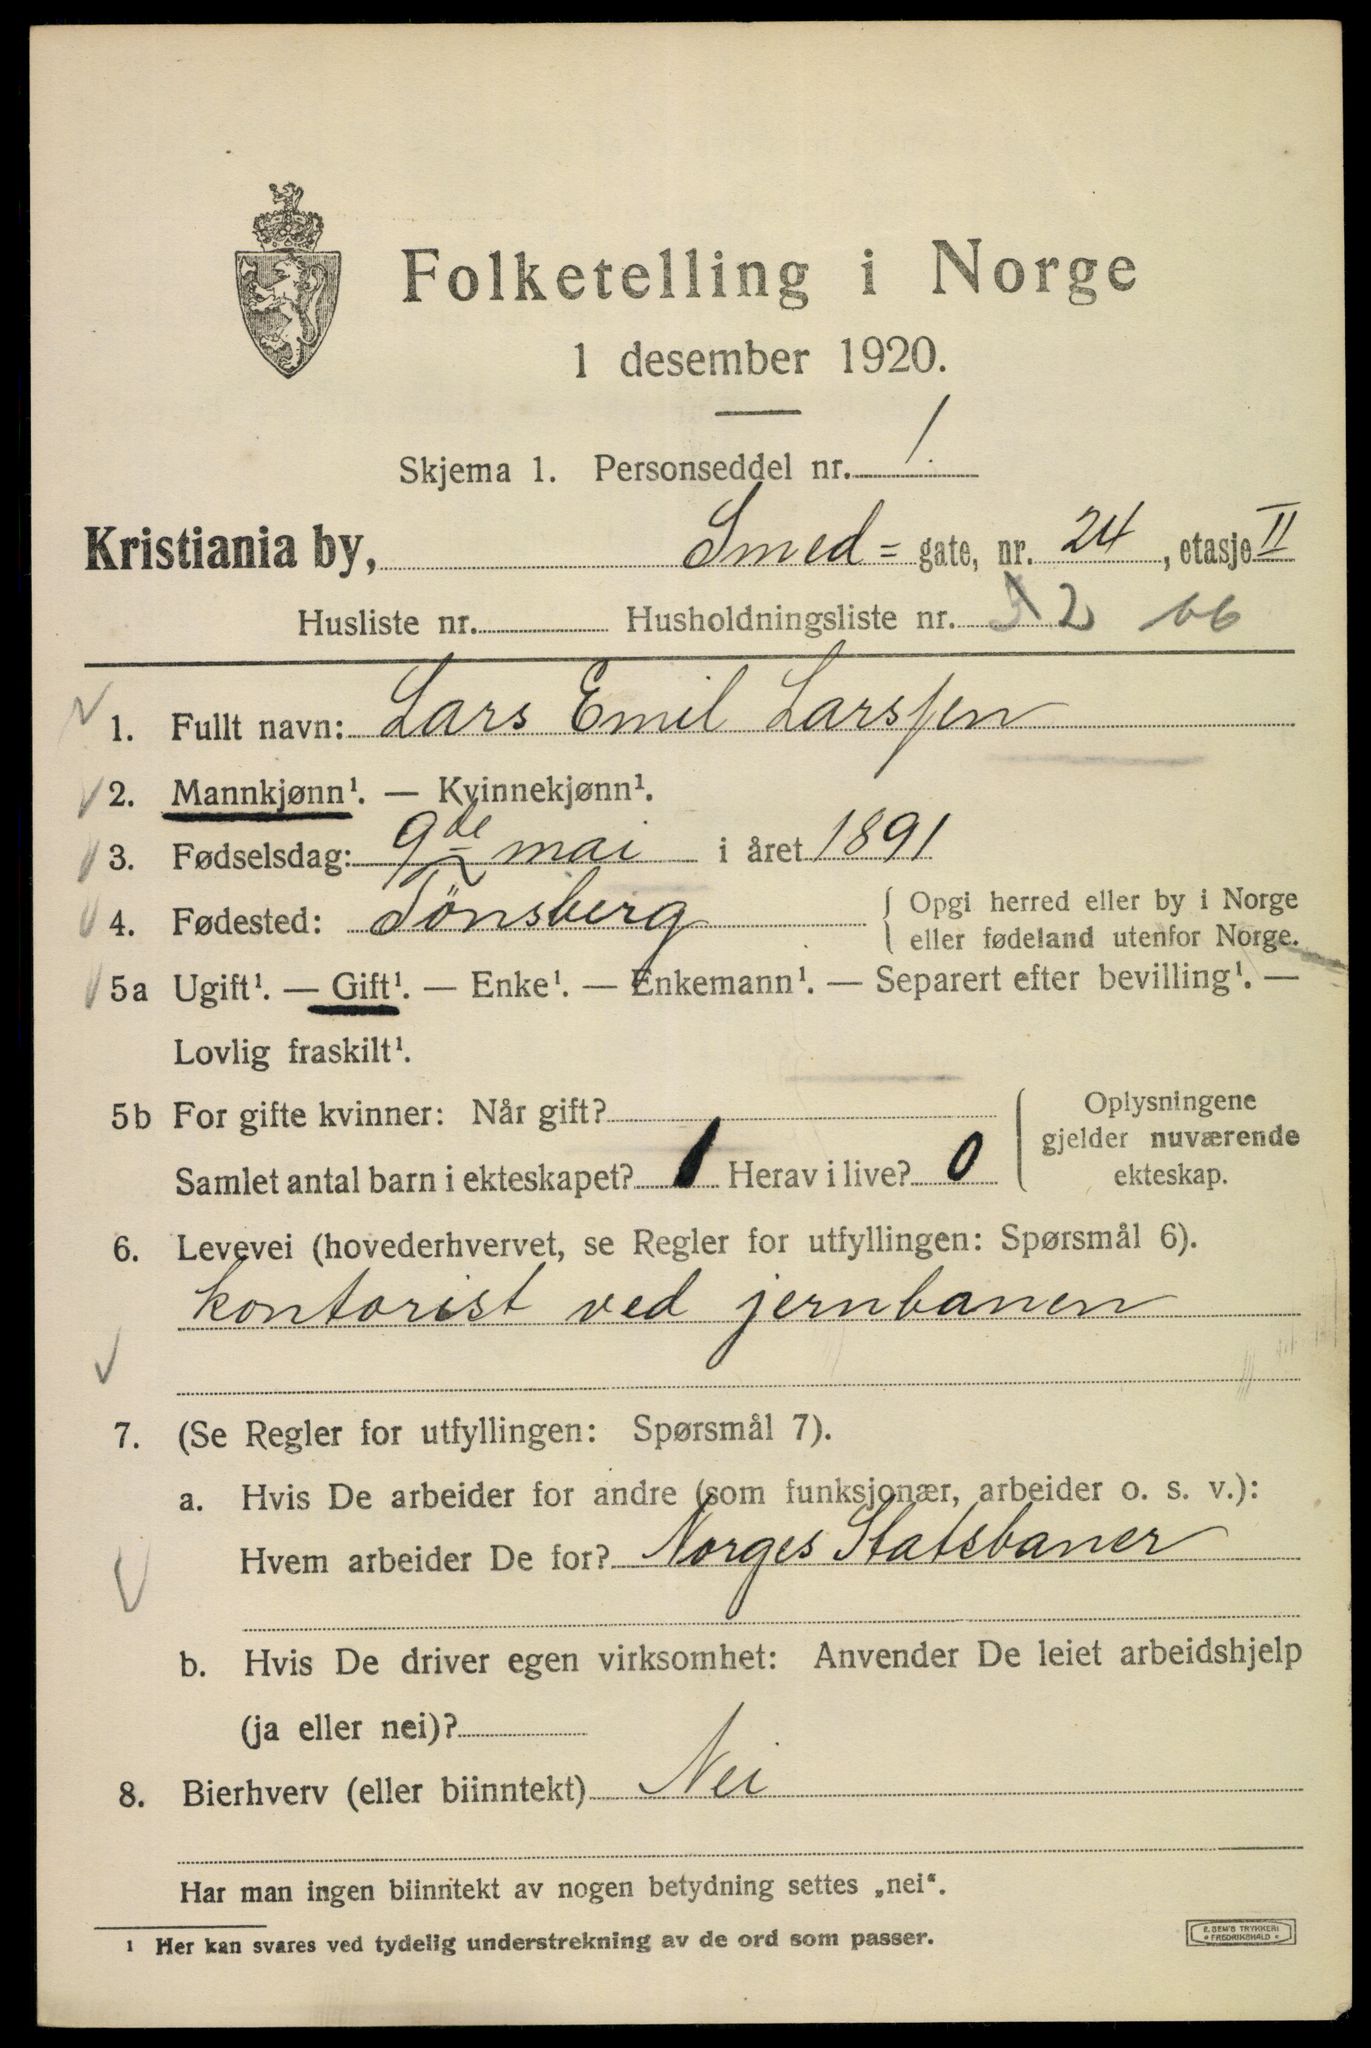 Folketelling i Norge
1 desember 1920.
Skjema 1. Personseddel nr. 1.
Kristiania by, Smed= gate, nr. 24, etasje II
Husliste nr. Husholdningsliste nr. 2 66
1. Fullt navn: Lars Emil Larssen
2. Mannkjønn¹. — Kvinnekjønn¹.
3. Fødselsdag: 9de mai i året 1891
4. Fødested: Tönsberg { Opgi herred eller by i Norge
eller fødeland utenfor Norge.
5a Ugift¹. — Gift¹. — Enke¹. — Enkemann¹. — Separert efter bevilling¹. —
Lovlig fraskilt¹.
5b For gifte kvinner: Når gift? { Oplysningene
gjelder nuværende
Samlet antal barn i ekteskapet? 1 Herav i live? 0
ekteskap.
6. Levevei (hovederhvervet, se Regler for utfyllingen: Spørsmål 6).
kontorist ved jernbanen
7. (Se Regler for utfyllingen: Spørsmål 7).
a. Hvis De arbeider for andre (som funksjonær, arbeider o. s. v.):
Hvem arbeider De for? Norges Statsbaner
b. Hvis De driver egen virksomhet: Anvender De leiet arbeidshjelp
(ja eller nei)?
8. Bierhverv (eller biinntekt) Nei
Har man ingen biinntekt av nogen betydning settes „nei“.
¹ Her kan svares ved tydelig understrekning av de ord som passer.
E. SEM'S TRYKKERI
* FREDRIKSHALD *